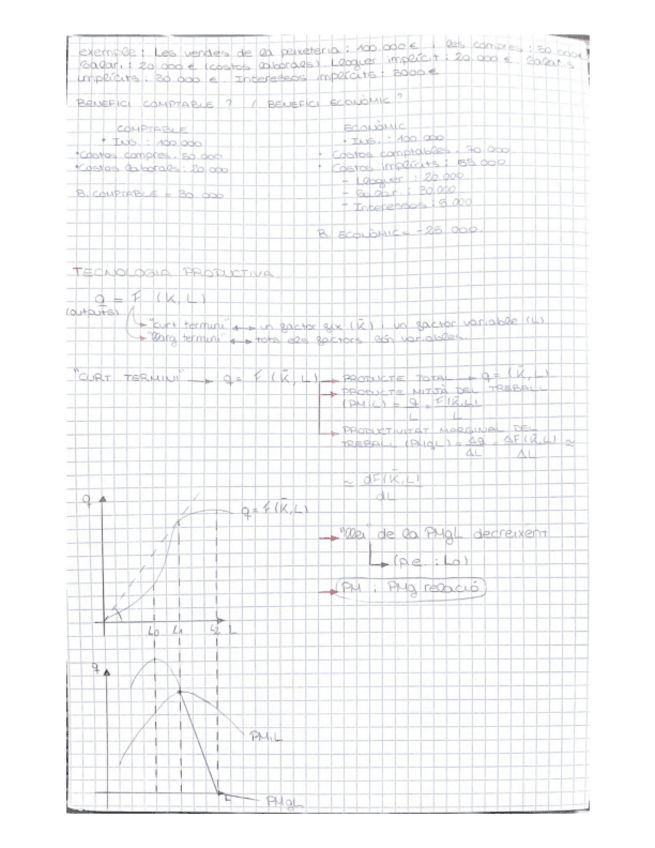 exemple: Les vendes de la papeteria: 100.000 € i les compres: 50.000 €
Salar.: 20.000 € (costos laborals). Lloguer implícit: 20.000 €. Salaris
implícits: 30.000 €. Interessos implícits: 5000 €
BENEFICI COMPTABLE? / BENEFICI ECONÒMIC?
COMPTABLE
• ING.: 100.000
• Costos compres: 50.000
• Costos laborals: 20.000
B. COMPTABLE = 30.000
ECONÒMIC
• ING.: 100.000
• Costos comptables: 70.000
• Costos implícits: 55.000
- Lloguer: 20.000
- Salar: 30.000
- Interessos: 5.000
B. ECONÒMIC = -25.000.
TECNOLOGIA PRODUCTIVA
q = F (K, L)
(outputs)
"curt termini" ↔ un factor fix (K̄) i un factor variable (L)
"llarg termini" ↔ tots els factors són variables.
"CURT TERMINI" → q = F (K̄, L)
→ PRODUCTE TOTAL → q = (K̄, L)
→ PRODUCTE MITJÀ DEL TREBALL
(PMiL) = q/L = F(K̄,L)/L
→ PRODUCTIVITAT MARGINAL DEL
TREBALL (PMgL) = Δq/ΔL = ΔF(K̄,L)/ΔL ≈
≈ dF(K̄,L)/dL
q
q = F(K̄,L)
L0 L1 L2 L
→ "llei" de la PMgL decreixent
(p.e.: L0)
→ (PM i PMg relació)
q
PMiL
L
PMgL